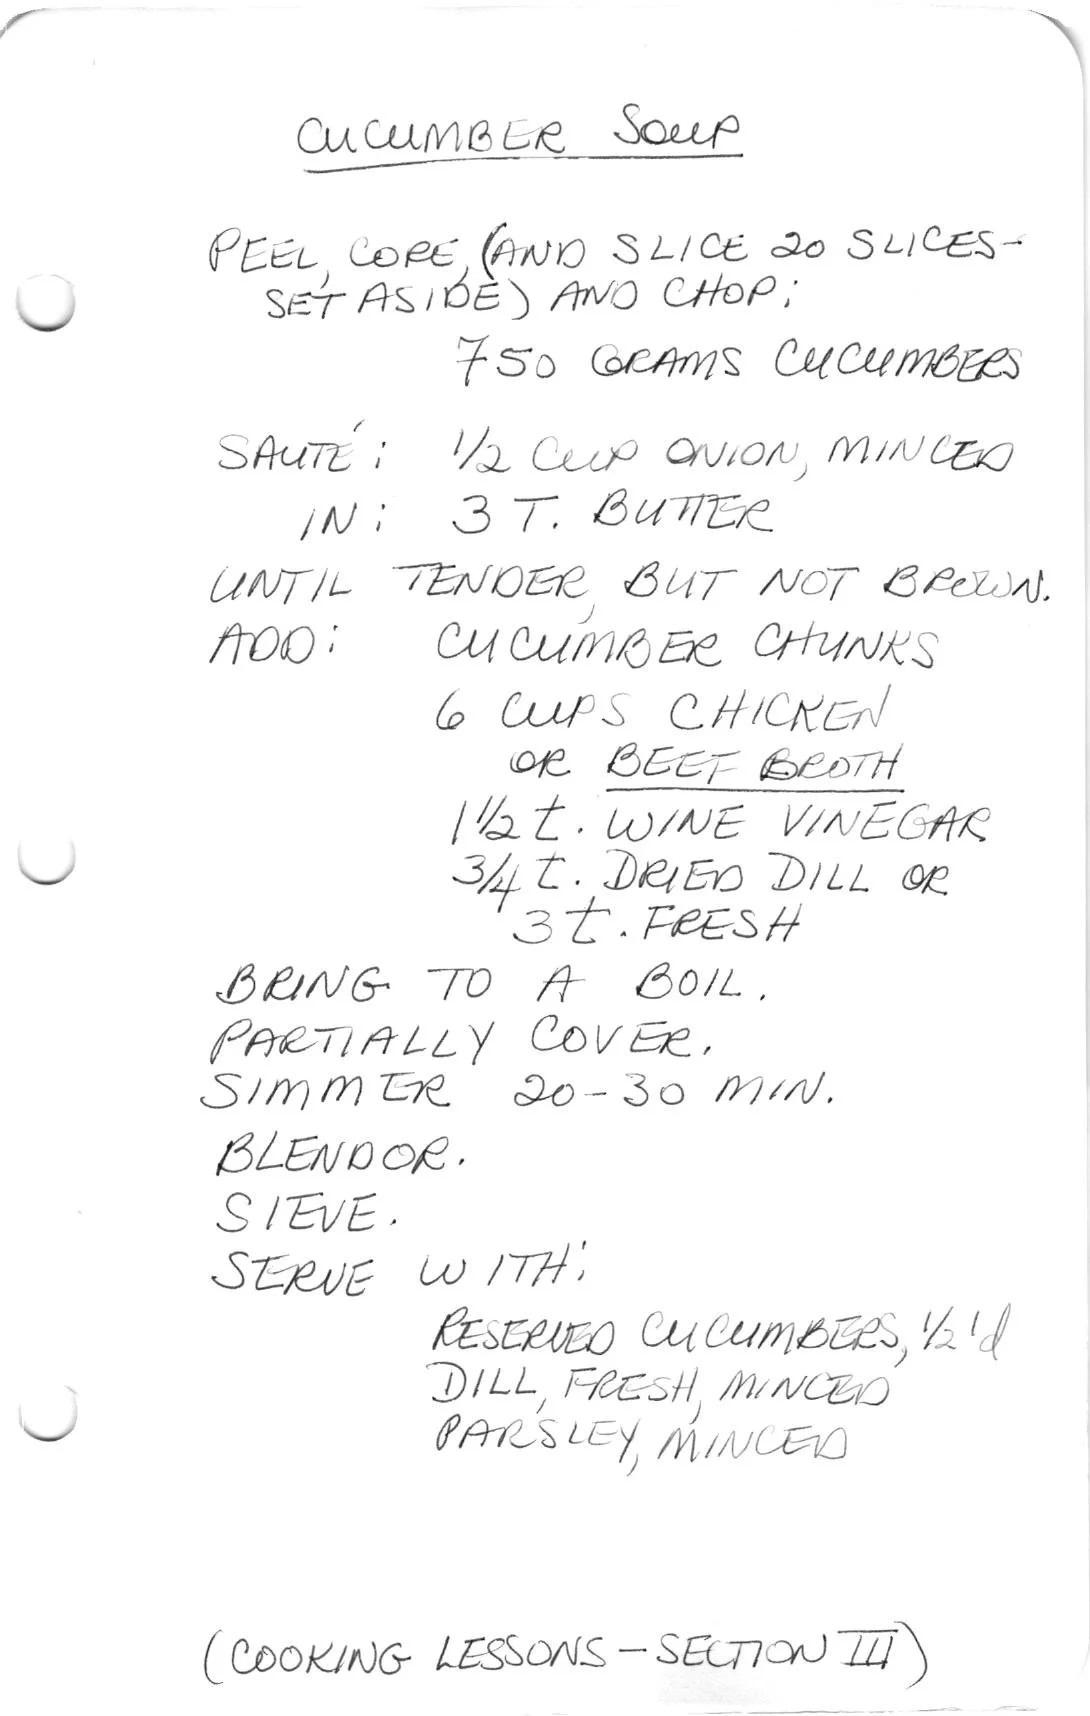 CUCUMBER SOUP
PEEL, CORE, (AND SLICE 20 SLICES-
SET ASIDE) AND CHOP:
750 GRAMS CUCUMBERS
SAUTÉ: 1/2 CUP ONION, MINCED
IN: 3 T. BUTTER
UNTIL TENDER, BUT NOT BROWN.
ADD: CUCUMBER CHUNKS
6 CUPS CHICKEN
OR BEEF BROTH
1 1/2 t. WINE VINEGAR
3/4 t. DRIED DILL OR
3 t. FRESH
BRING TO A BOIL.
PARTIALLY COVER.
SIMMER 20-30 MIN.
BLENDOR.
SIEVE.
SERVE WITH:
RESERVED CUCUMBERS, 1/2'd
DILL, FRESH, MINCED
PARSLEY, MINCED
(COOKING LESSONS - SECTION III)